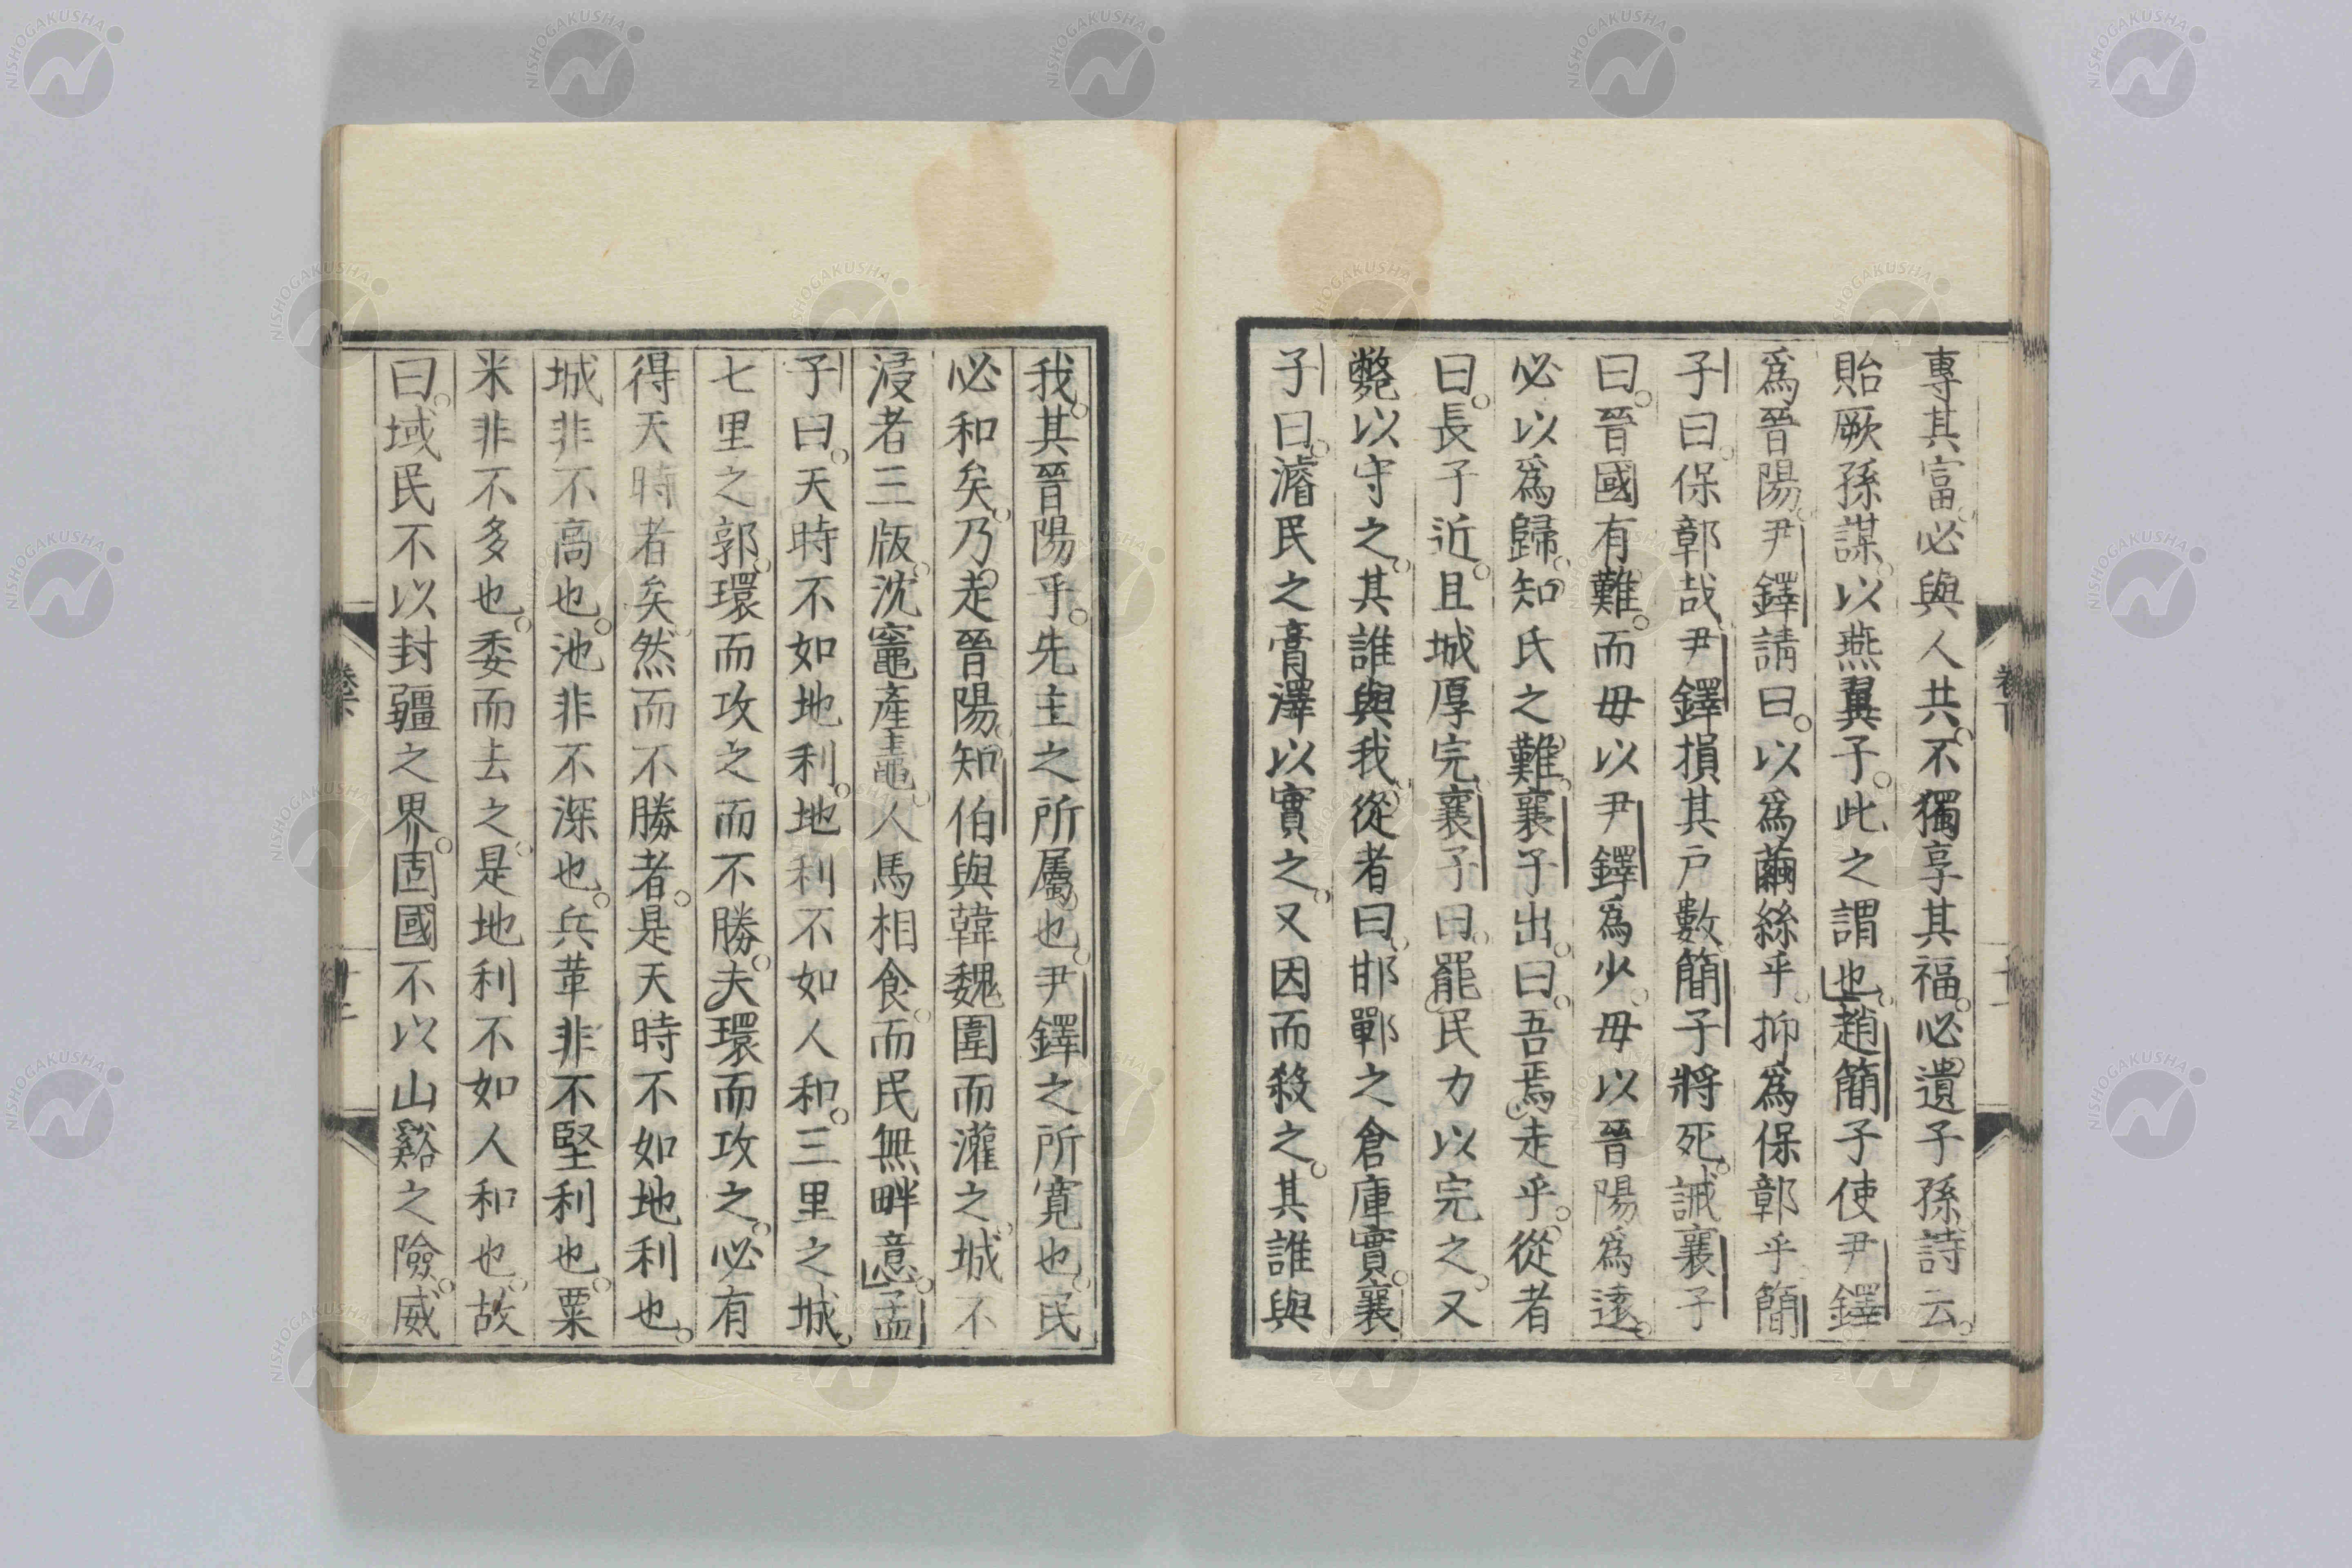 專其富。必與人共。不獨享其福。必遺子孫詩云。
貽厥孫謀。以燕翼子。此之謂也。趙簡子使尹鐸
爲晉陽。尹鐸請曰。以爲繭絲乎。抑爲保鄣乎。簡
子曰。保鄣哉。尹鐸損其戶數。簡子將死。誡襄子
曰。晉國有難。而毋以尹鐸爲少。毋以晉陽爲遠。
必以爲歸。知氏之難。襄子出。曰。吾焉走乎。從者
曰。長子近。且城厚完。襄子曰。罷民力以完之。又
斃以守之。其誰與我。從者曰。邯鄲之倉庫實。襄
子曰。濬民之膏澤以實之。又因而殺之。其誰與
卷下
十一
我。其晉陽乎。先主之所屬也。尹鐸之所寬也。民
必和矣。乃走晉陽。知伯與韓魏圍而灌之。城不
浸者三版。沈竈產鼃。人馬相食。而民無畔意。孟
子曰。天時不如地利。地利不如人和。三里之城。
七里之郭。環而攻之而不勝。夫環而攻之。必有
得天時者矣。然而不勝者。是天時不如地利也。
城非不高也。池非不深也。兵革非不堅利也。粟
米非不多也。委而去之。是地利不如人和也。故
曰。域民不以封疆之界。固國不以山谿之險。威
NISHOGAKUSHA